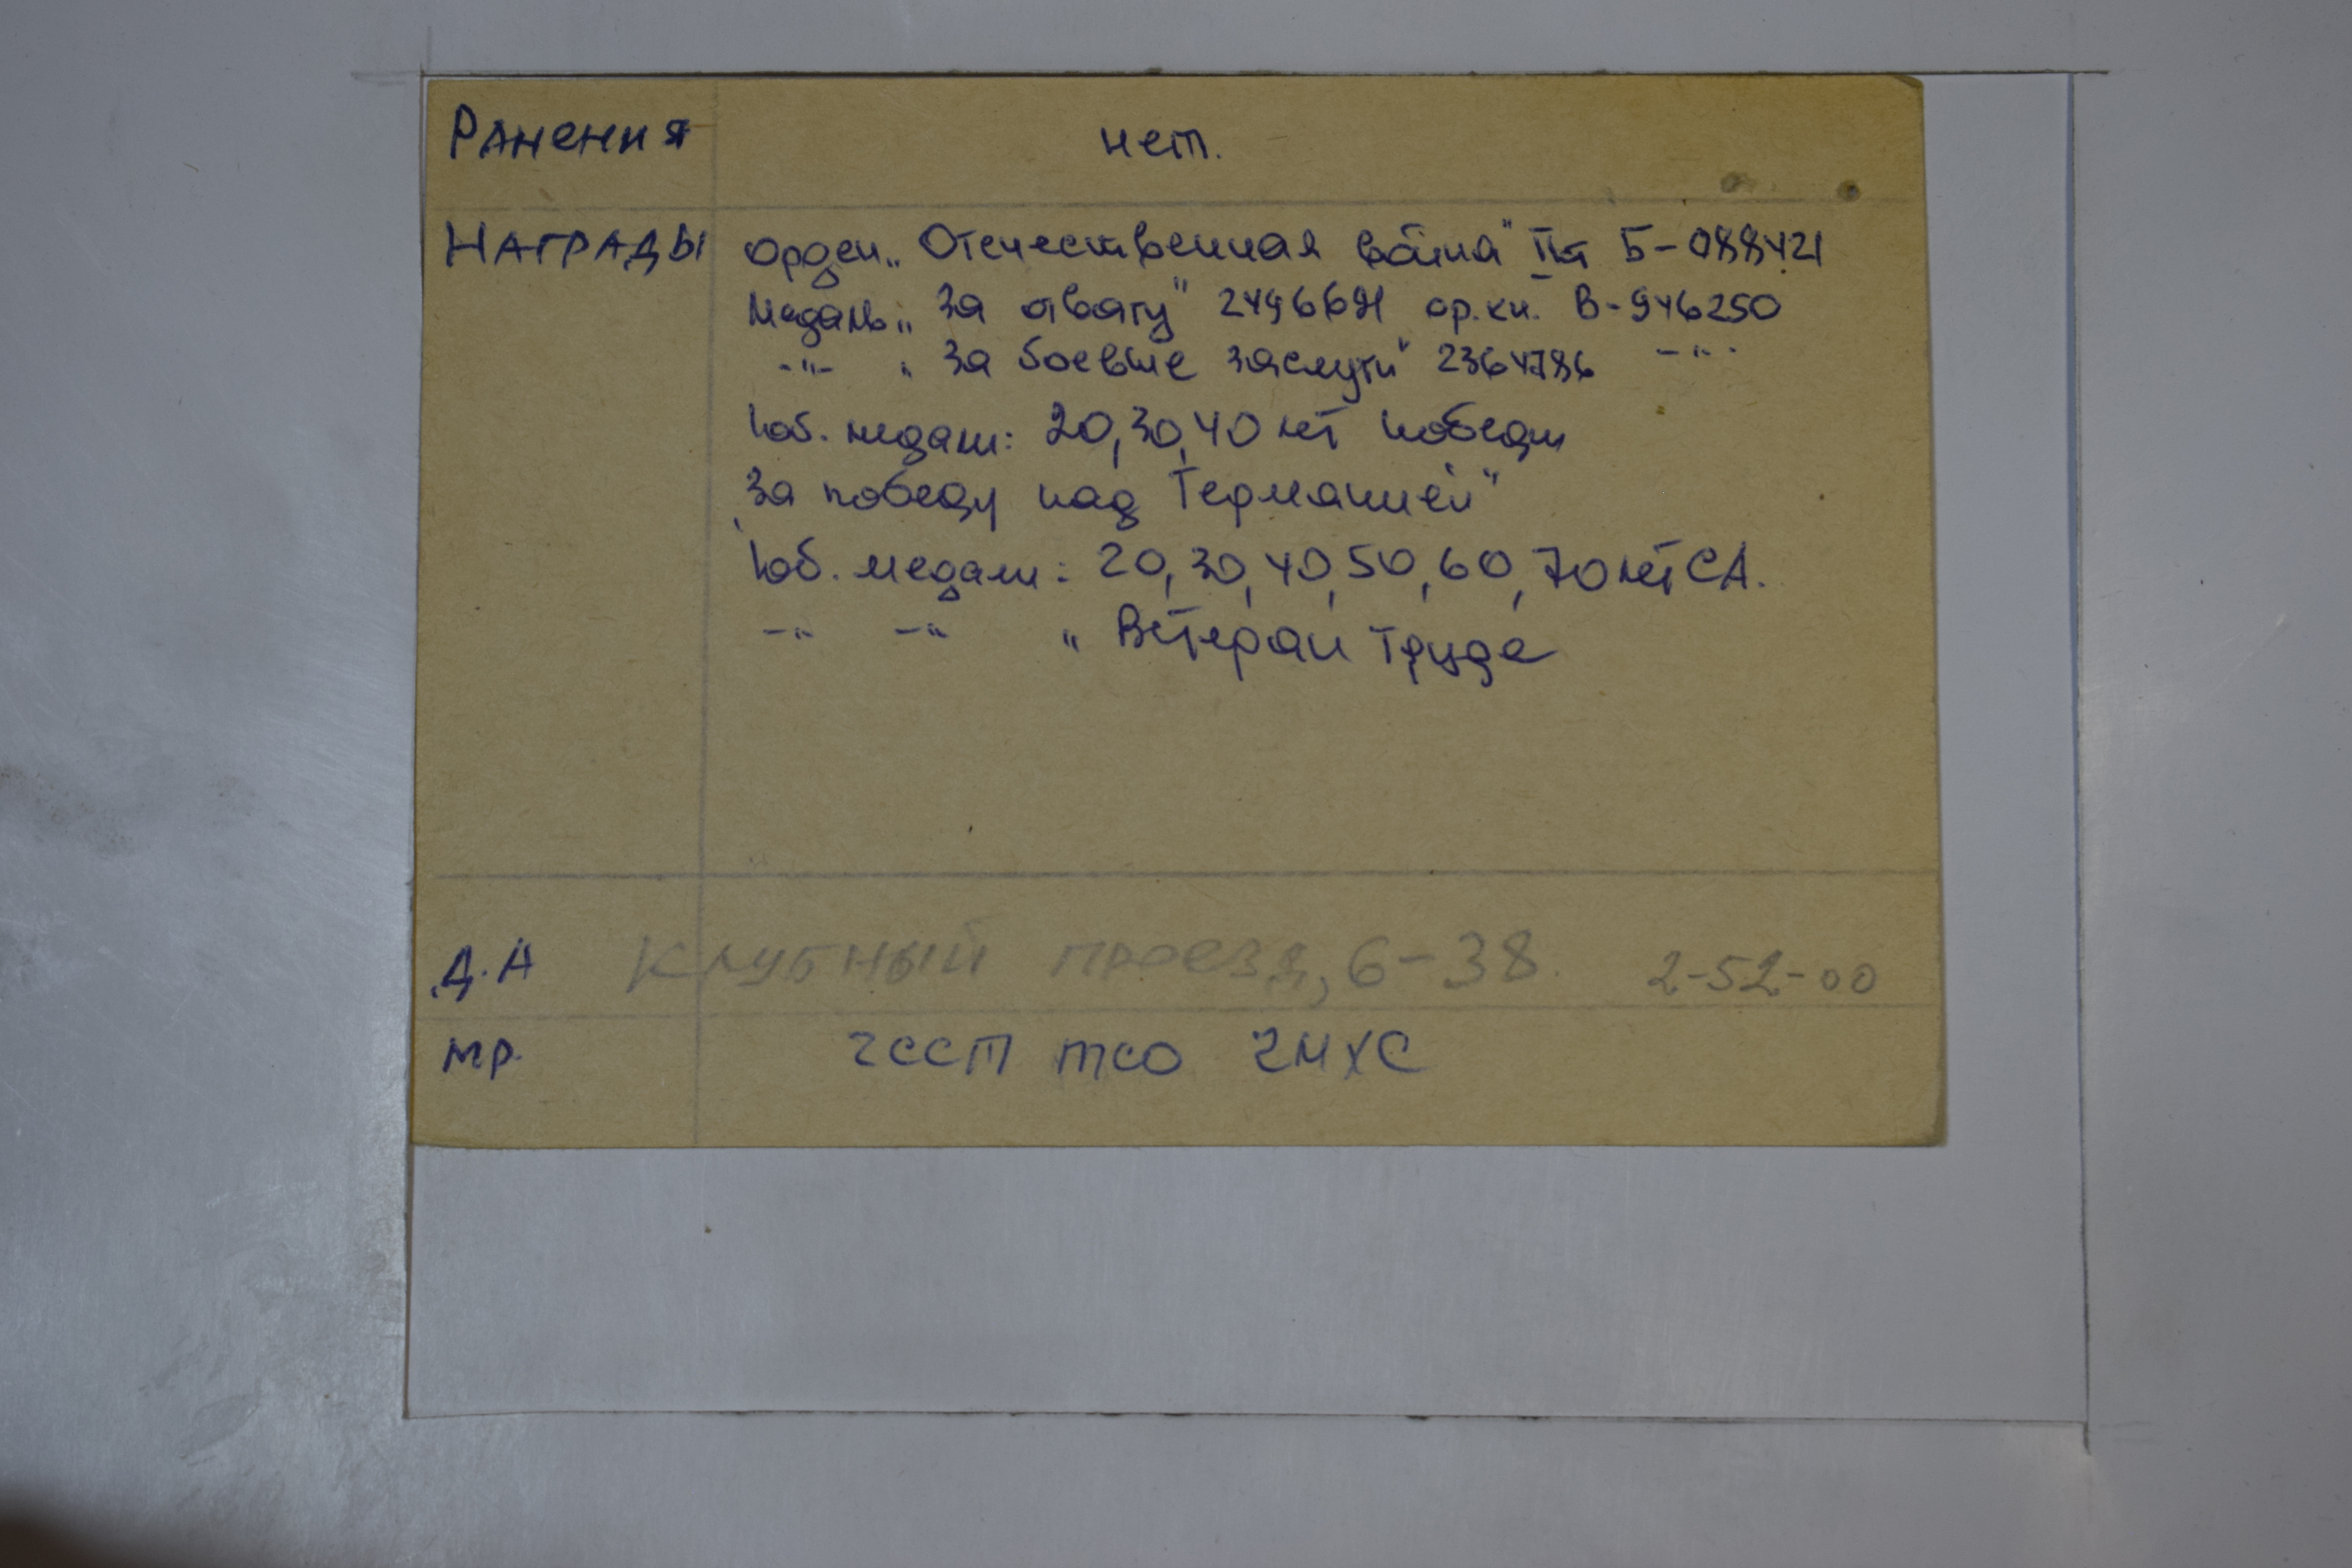 Ранения нет.
Награды орден „Отечественная война" II ст Б-088421
Медаль „За отвагу" 2496691 ор.кн. В-946250
-"- „За боевые заслуги" 2364786 -"-
Юб. медали: 20, 30, 40 лет победы
„За победу над Германией"
Юб. медали: 20, 30, 40, 50, 60, 70 лет СА.
-"- -"- „Ветеран труда
Д.А Клубный проезд, 6-38. 2-52-00
мр. 2ССП тсо ЧМХС